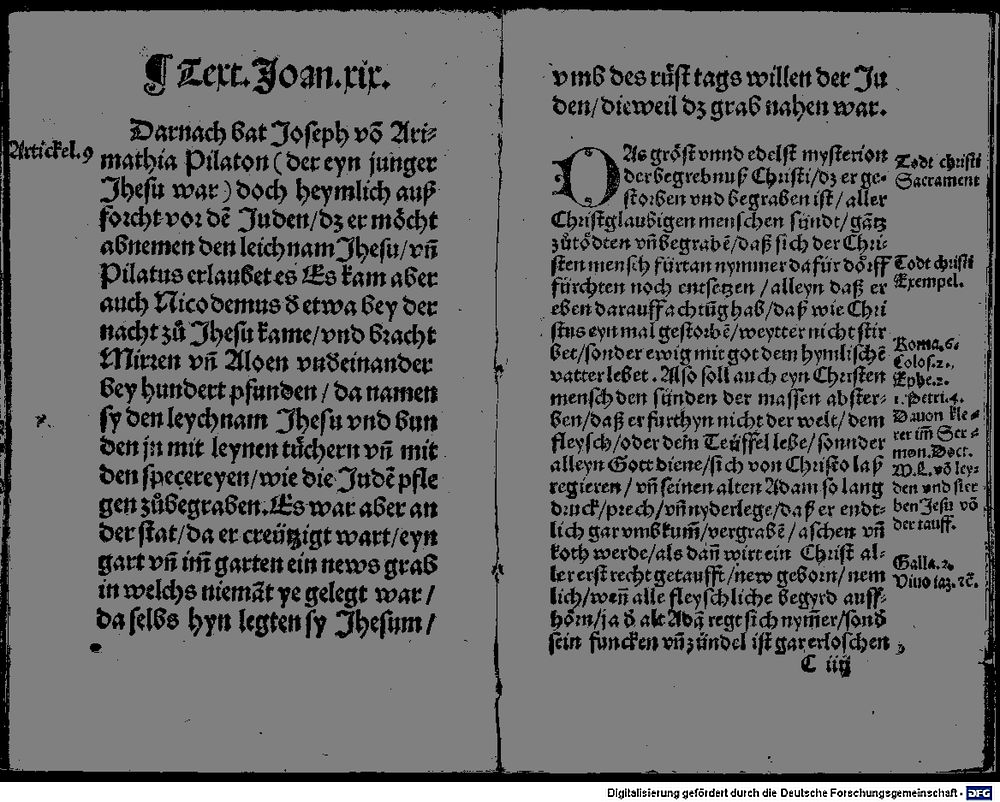 ¶ Text. Joan. xix.
Artickel. 9
Darnach bat Joseph võ Ari⸗
mathia Pilaton ( der eyn junger
Jhesu war ) doch heymlich auß
forcht vor dẽ Juden / dz er möcht
abnemen den leichnam Jhesu / vñ
Pilatus erlaubet es Es kam aber
auch Nicodemus d̕ etwa bey der
nacht zů Jhesu kame / vnd bracht
Mirren vñ Aloen vndeinander
bey hundert pfunden / da namen
sy den leychnam Jhesu vnd bun
den jn mit leynen tüchern vñ mit
den specereyen / wie die Judẽ pfle
gen zůbegraben. Es war aber an
der stat / da er creützigt wart / eyn
gart vñ im̃ garten ein news grab
in welchs niemãt ye gelegt war /
daselbs hyn legten sy Jhesum /
vmb des rüst tags willen der Ju
den / dieweil dz grab nahen war.
DAs gröst vnnd edelst mysterion
der begrebnuß Christi / dz er ge⸗
storben vnd begraben ist / aller
Christglaubigen menschen sündt / gãtz
zůtödten vñ begrabẽ / daß sich der Chri⸗
sten mensch fürtan nymmer dafür dörff
fürchten noch entsetzen / alleyn daß er
eben darauff achtüg hab / daß wie Chri
stus eyn mal gestorbẽ / weytter nicht stir
bet / sonder ewig mit got dem hymlischẽ
vatter lebet. Also soll auch eyn Christen
mensch den sünden der massen abster⸗
ben / daß er furthyn nicht der welt / dem
fleysch / oder dem Teüffel lebe / sonnder
alleyn Gott diene / sich von Christo laß
regieren / vñ seinen alten Adam so lang
druck / prech / vñ nyderlege / daß er endt⸗
lich gar vmbkum̃ / vergrabẽ / aschen vñ
koth werde / als dañ wirt ein Christ al⸗
ler erst recht getaufft / new geborn / nem
lich / weñ alle fleyschliche begyrd auff⸗
hörn / ja d̕ alt Adã regt sich nym̃er / sond̕
sein funcken vñ zündel ist gar erloschen
C iiij
Todt christi
Sacrament
Todt christi
Exempel.
Roma. 6.
Colos. 2.
Ephe. 2.
1. Petri. 4.
Dauon kle⸗
rer im̃ Ser⸗
mon. Doct.
M. L. võ ley⸗
den vnd ster
ben Jesu võ
der tauff.
Galla. 2.
Viuo iaz. ⁊c̃.
Digitalisierung gefördert durch die Deutsche Forschungsgemeinschaft - DFG